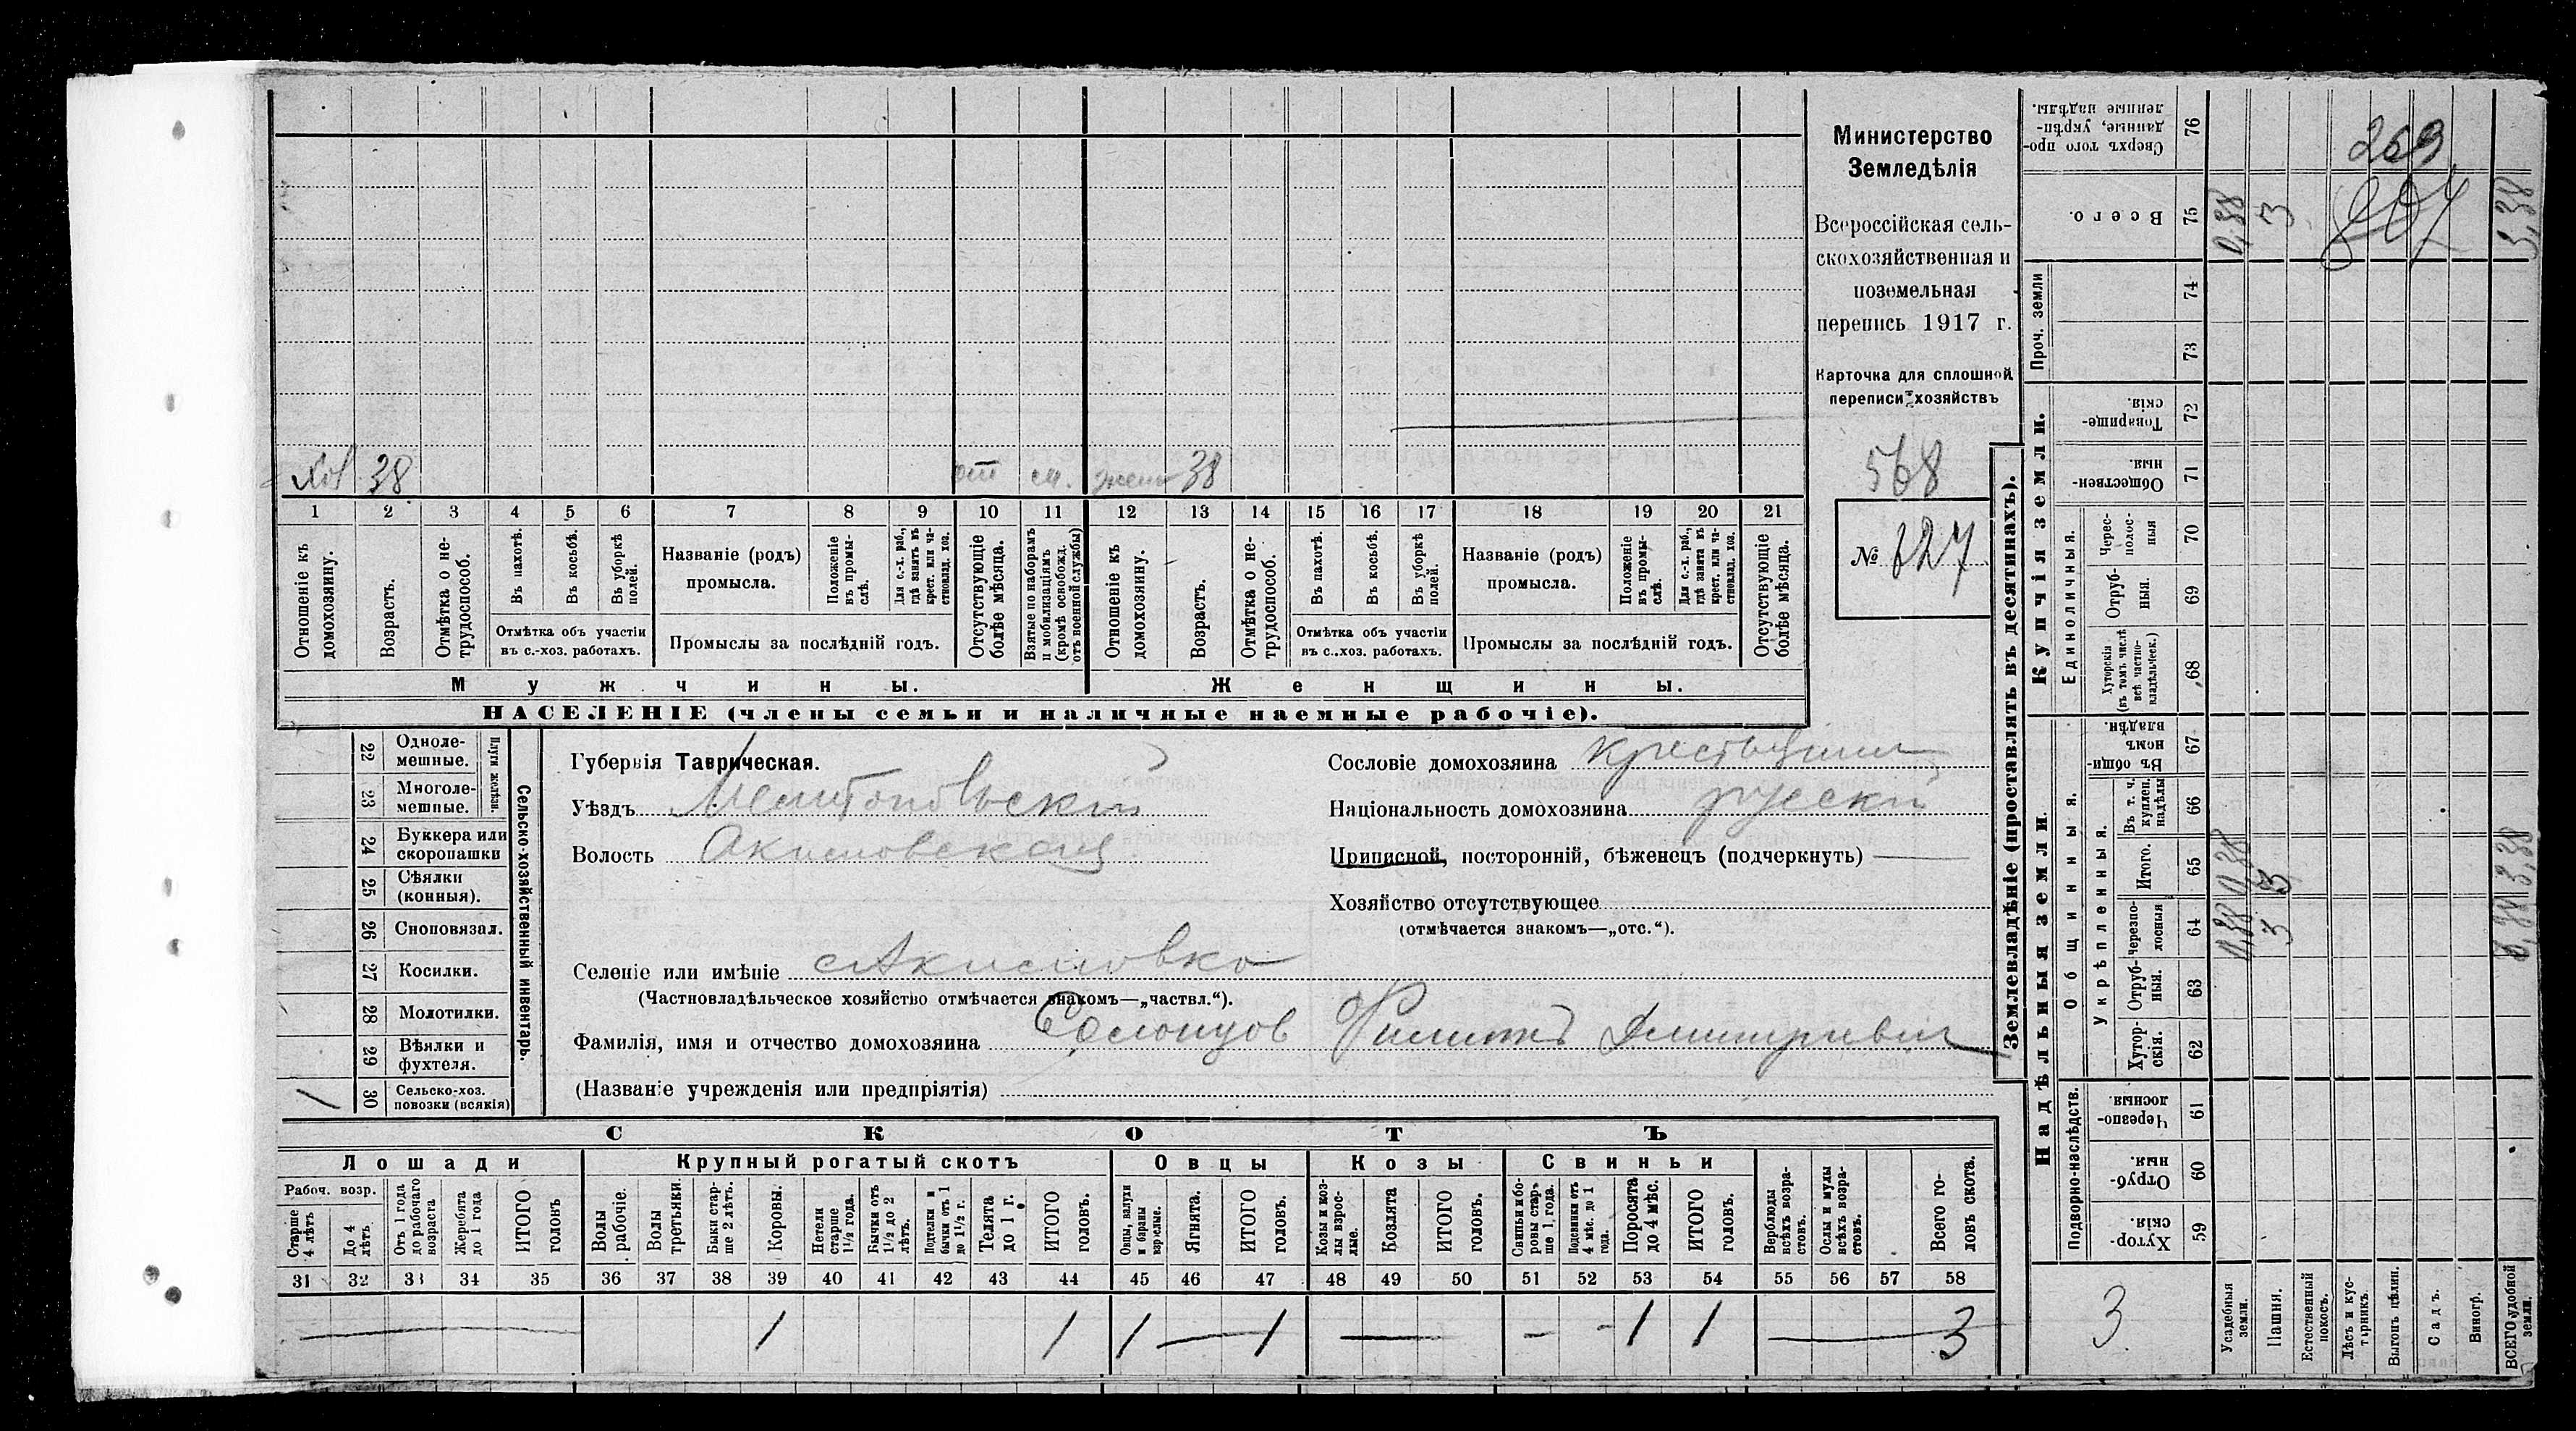 Министерство
Земледѣлія
Всероссійская сель-
скохозяйственная и
поземельная
перепись 1917 г.
Карточка для сплошной
переписи хозяйствъ
568
№ 627
Хоз 38 от жена 38
1 2 3 4 5 6 7 8 9 10 11 12 13 14 15 16 17 18 19 20 21
Отношеніе къ домохозяину.
Возрастъ.
Отмѣтка о не-трудоспособ.
Въ пахотѣ.
Въ косьбѣ.
Въ уборкѣ полей.
Отмѣтка объ участіи въ с.-хоз. работахъ.
Названіе (родъ) промысла.
Положеніе въ промы-слѣ.
Для с.-х. раб., гдѣ занятъ въ крест. или ча-стновлад. хоз.
Промыслы за послѣдній годъ.
Отсутствующіе болѣе мѣсяца.
Взятые по наборамъ и мобилизаціямъ (кромѣ освобожд. отъ военной службы)
Отношеніе къ домохозяину.
Возрастъ.
Отмѣтка о не-трудоспособ.
Въ пахотѣ.
Въ косьбѣ.
Въ уборкѣ полей.
Отмѣтка объ участіи въ с.-хоз. работахъ.
Названіе (родъ) промысла.
Положеніе въ промы-слѣ.
Для с.-х. раб., гдѣ занята въ крест. или ча-стновлад. хоз.
Промыслы за послѣдній годъ.
Отсутствующіе болѣе мѣсяца.
Мужчины. Женщины.
НАСЕЛЕНІЕ (члены семьи и наличные наемные рабочіе).
Сельско-хозяйственный инвентарь.
Плуги желѣзн.
22 Одноле-мешные.
23 Многоле-мешные.
24 Буккера или скоропашки
25 Сѣялки (конныя).
26 Сноповязал.
27 Косилки.
28 Молотилки.
29 Вѣялки и фухтеля.
/ 30 Сельско-хоз. повозки (всякія)
Губернія Таврическая.
Уѣздъ Мелитопольскій
Волость Акимовская
Селеніе или имѣніе с Акимовка
(Частновладѣльческое хозяйство отмѣчается знакомъ—„частвл.“).
Фамилія, имя и отчество домохозяина Солонцов Филиппъ Дмитріевич
(Названіе учрежденія или предпріятія)
Сословіе домохозяина крестьянин
Національность домохозяина русскій
Приписной, посторонній, бѣженецъ (подчеркнуть)
Хозяйство отсутствующее
(отмѣчается знакомъ—„отс.“).
СКОТЪ
Лошади Крупный рогатый скотъ Овцы Козы Свиньи
Рабоч. возр.
Старше 4 лѣтъ
До 4 лѣтъ
Отъ 1 года до рабочаго возраста
Жеребята до 1 года
ИТОГО головъ
Волы рабочіе.
Волы третьяки.
Быки стар-ше 2 лѣтъ.
Коровы.
Нетели старше 1½ года.
Бычки отъ 1½ до 2 лѣтъ.
Подтелки и бычки отъ 1 до 1½ г.
Телята до 1 г.
ИТОГО головъ.
Овцы, валухи и бараны взрослые.
Ягнята.
ИТОГО головъ.
Козы и коз-лы взрос-лые.
Козлята
ИТОГО головъ.
Свиньи и бо-ровы старъ-ше 1 года.
Подсвинки отъ 4 мѣс. до 1 года.
Поросята до 4 мѣс.
ИТОГО головъ.
Верблюды всѣхъ возра-стовъ.
Ослы и мулы всѣхъ возра-стовъ.
Всего го-ловъ скота.
31 32 33 34 35 36 37 38 39 40 41 42 43 44 45 46 47 48 49 50 51 52 53 54 55 56 57 58
1 1 1 — 1 — - - 1 1 — 3
Землевладѣніе (проставлять въ десятинахъ).
Надѣльныя земли. Купчія земли. Проч. земли
Подворно-наслѣдств. Общинныя. Укрѣпленныя. Единоличныя.
59 Хутор-скія.
60 Отруб-ныя.
61 Черезпо-лосныя.
62 Хутор-скія.
63 Отруб-ныя.
64 Черезпо-лосныя 0,38 3
65 Итого. 0,38 3 3,38
66 Въ т. ч. куплен. надѣлы
67 Въ общи-номъ владѣн.
68 Хуторскія (въ томъ числѣ всѣ частно-владѣльческ.)
69 Отруб-ныя.
70 Черес-полос-ныя
71 Обществен-ныя.
72 Товарище-скія.
73
74
75 Всего. 0,38 3 3,38
76 Сверхъ того про-данные, укрѣп-ленные надѣлы.
269
Усадебныя земли.
Пашня.
Естественный покосъ.
Лѣсъ и кус-тарникъ.
Выгонъ цѣлин.
Садъ.
Виногр.
ВСЕГО удобной земли.
3